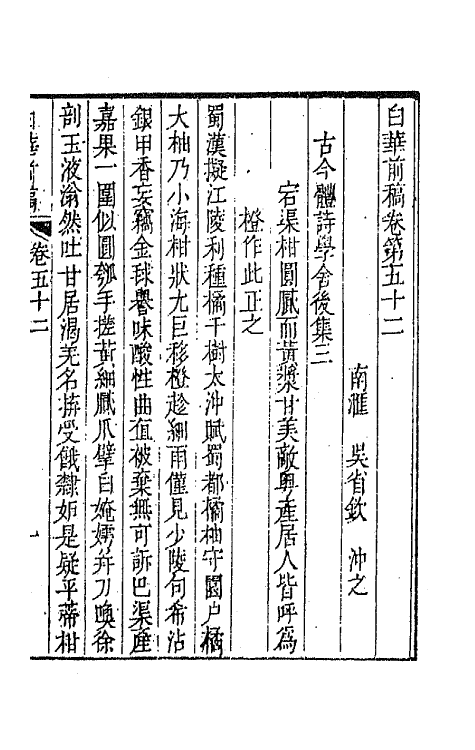 白華前稿卷第五十二
南滙　吳省欽　沖之
古今體詩學舍後集三
宕渠柑圓膩而黃漿甘美敵粤產居人皆呼為
橙作此正之
蜀漢擬江陵利種橘千樹太沖賦蜀都橘柚守園戸橘
大柚乃小海柑狀尤巨移橙趁細雨僅見少陵句希沾
銀甲香妄竊金毬譽味酸性曲直被棄無可訴巴渠產
嘉果一圍似圓瓠手搓黃細膩爪擘白婉嫮并刀喚徐
剖玉液滃然吐甘居渴羌名拚受餓隸妬是疑平蒂柑
白華前稿
卷五十二
一